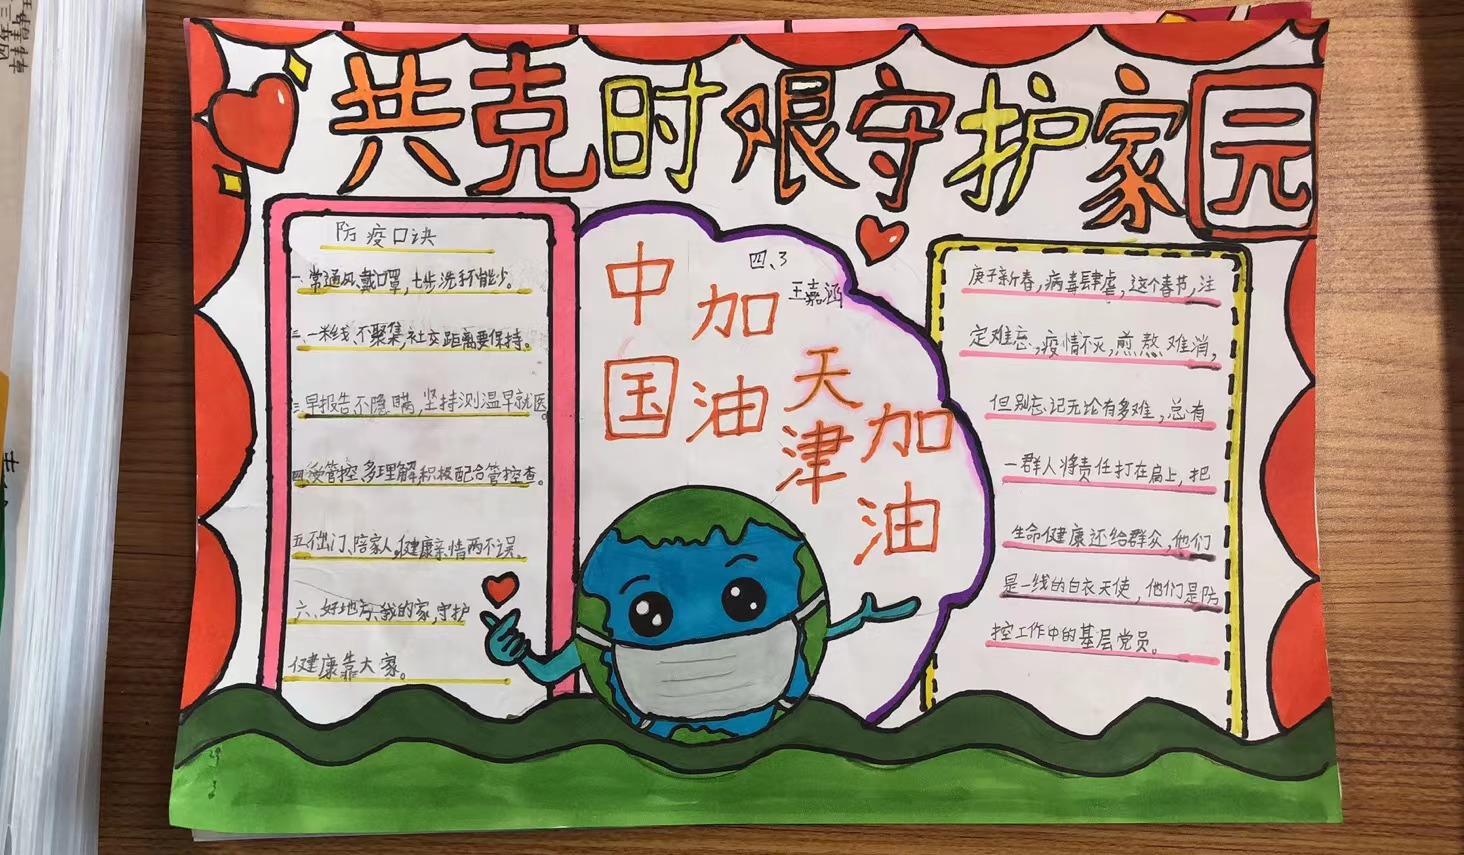 共克时艰守护家园
防疫口诀
一、常通风、戴口罩,七步洗手不能少。
二、一米线、不聚集,社交距离要保持。
三、早报告不隐瞒,坚持测温早就医
管控、多理解积极配合管控查。
五、不出门、陪家人,健康亲情两不误。
六、好地方、我的家,守护
健康靠大家。
四、3
王嘉涵
中国
加油
天津
加油
庚子新春,病毒肆虐,这个春节,注
定难忘,疫情不灭,煎熬难消,
但别忘记无论有多难,总有
一群人将责任打在肩上,把
生命健康还给群众,他们
是一线的白衣天使,他们是防
控工作中的基层党员。